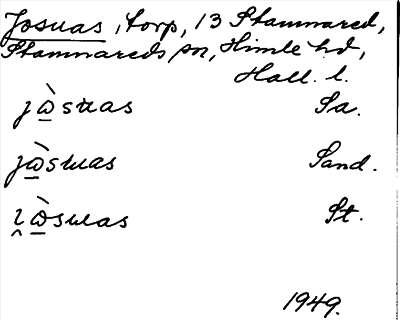 Josuas, torp, 13 Stamnared,
Stamnareds sn, Himle hd,
Hall. l.
jὼ̲suas Sa.
jὼ̲suas Sand.
i̯ὼ̲suas St.
1949.